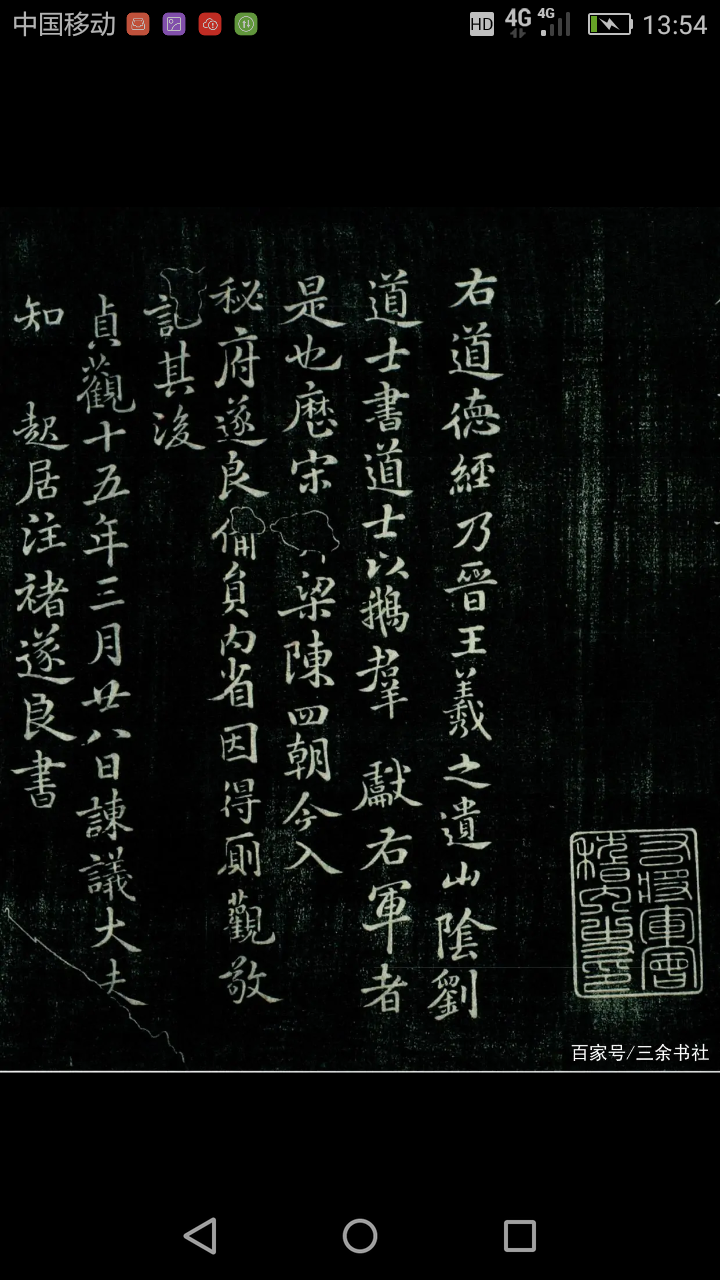 中国移动 HD 4G 4G 13:54
右將軍會
稽內史印
右道德經乃晉王羲之遺山陰劉
道士書道士以鵝羣 獻右軍者
是也歷宋 梁陳四朝今入
秘府遂良備員內省因得厠觀敬
記其後
貞觀十五年三月廿八日諫議大夫
知 起居注褚遂良書
百家号/三余书社